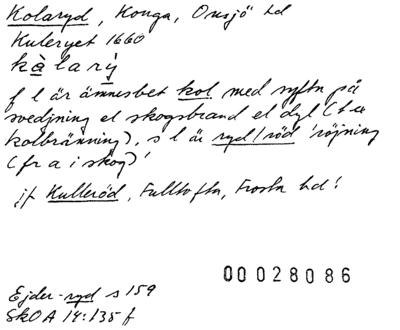 Kolaryd, Konga, Onsjö hd
Kuleryet 1660
kàlarý
f l är ämnesbet kol med syftn på
svedjning el skogsbrand el dyl (t ex
kolbränning), s l är ryd/röd 'röjning
(fr a i skog)'
jf Kulleröd, Fulltofta, Frosta hd!
00028086
Ejder-ryd s 159
SkOA 14:135 f